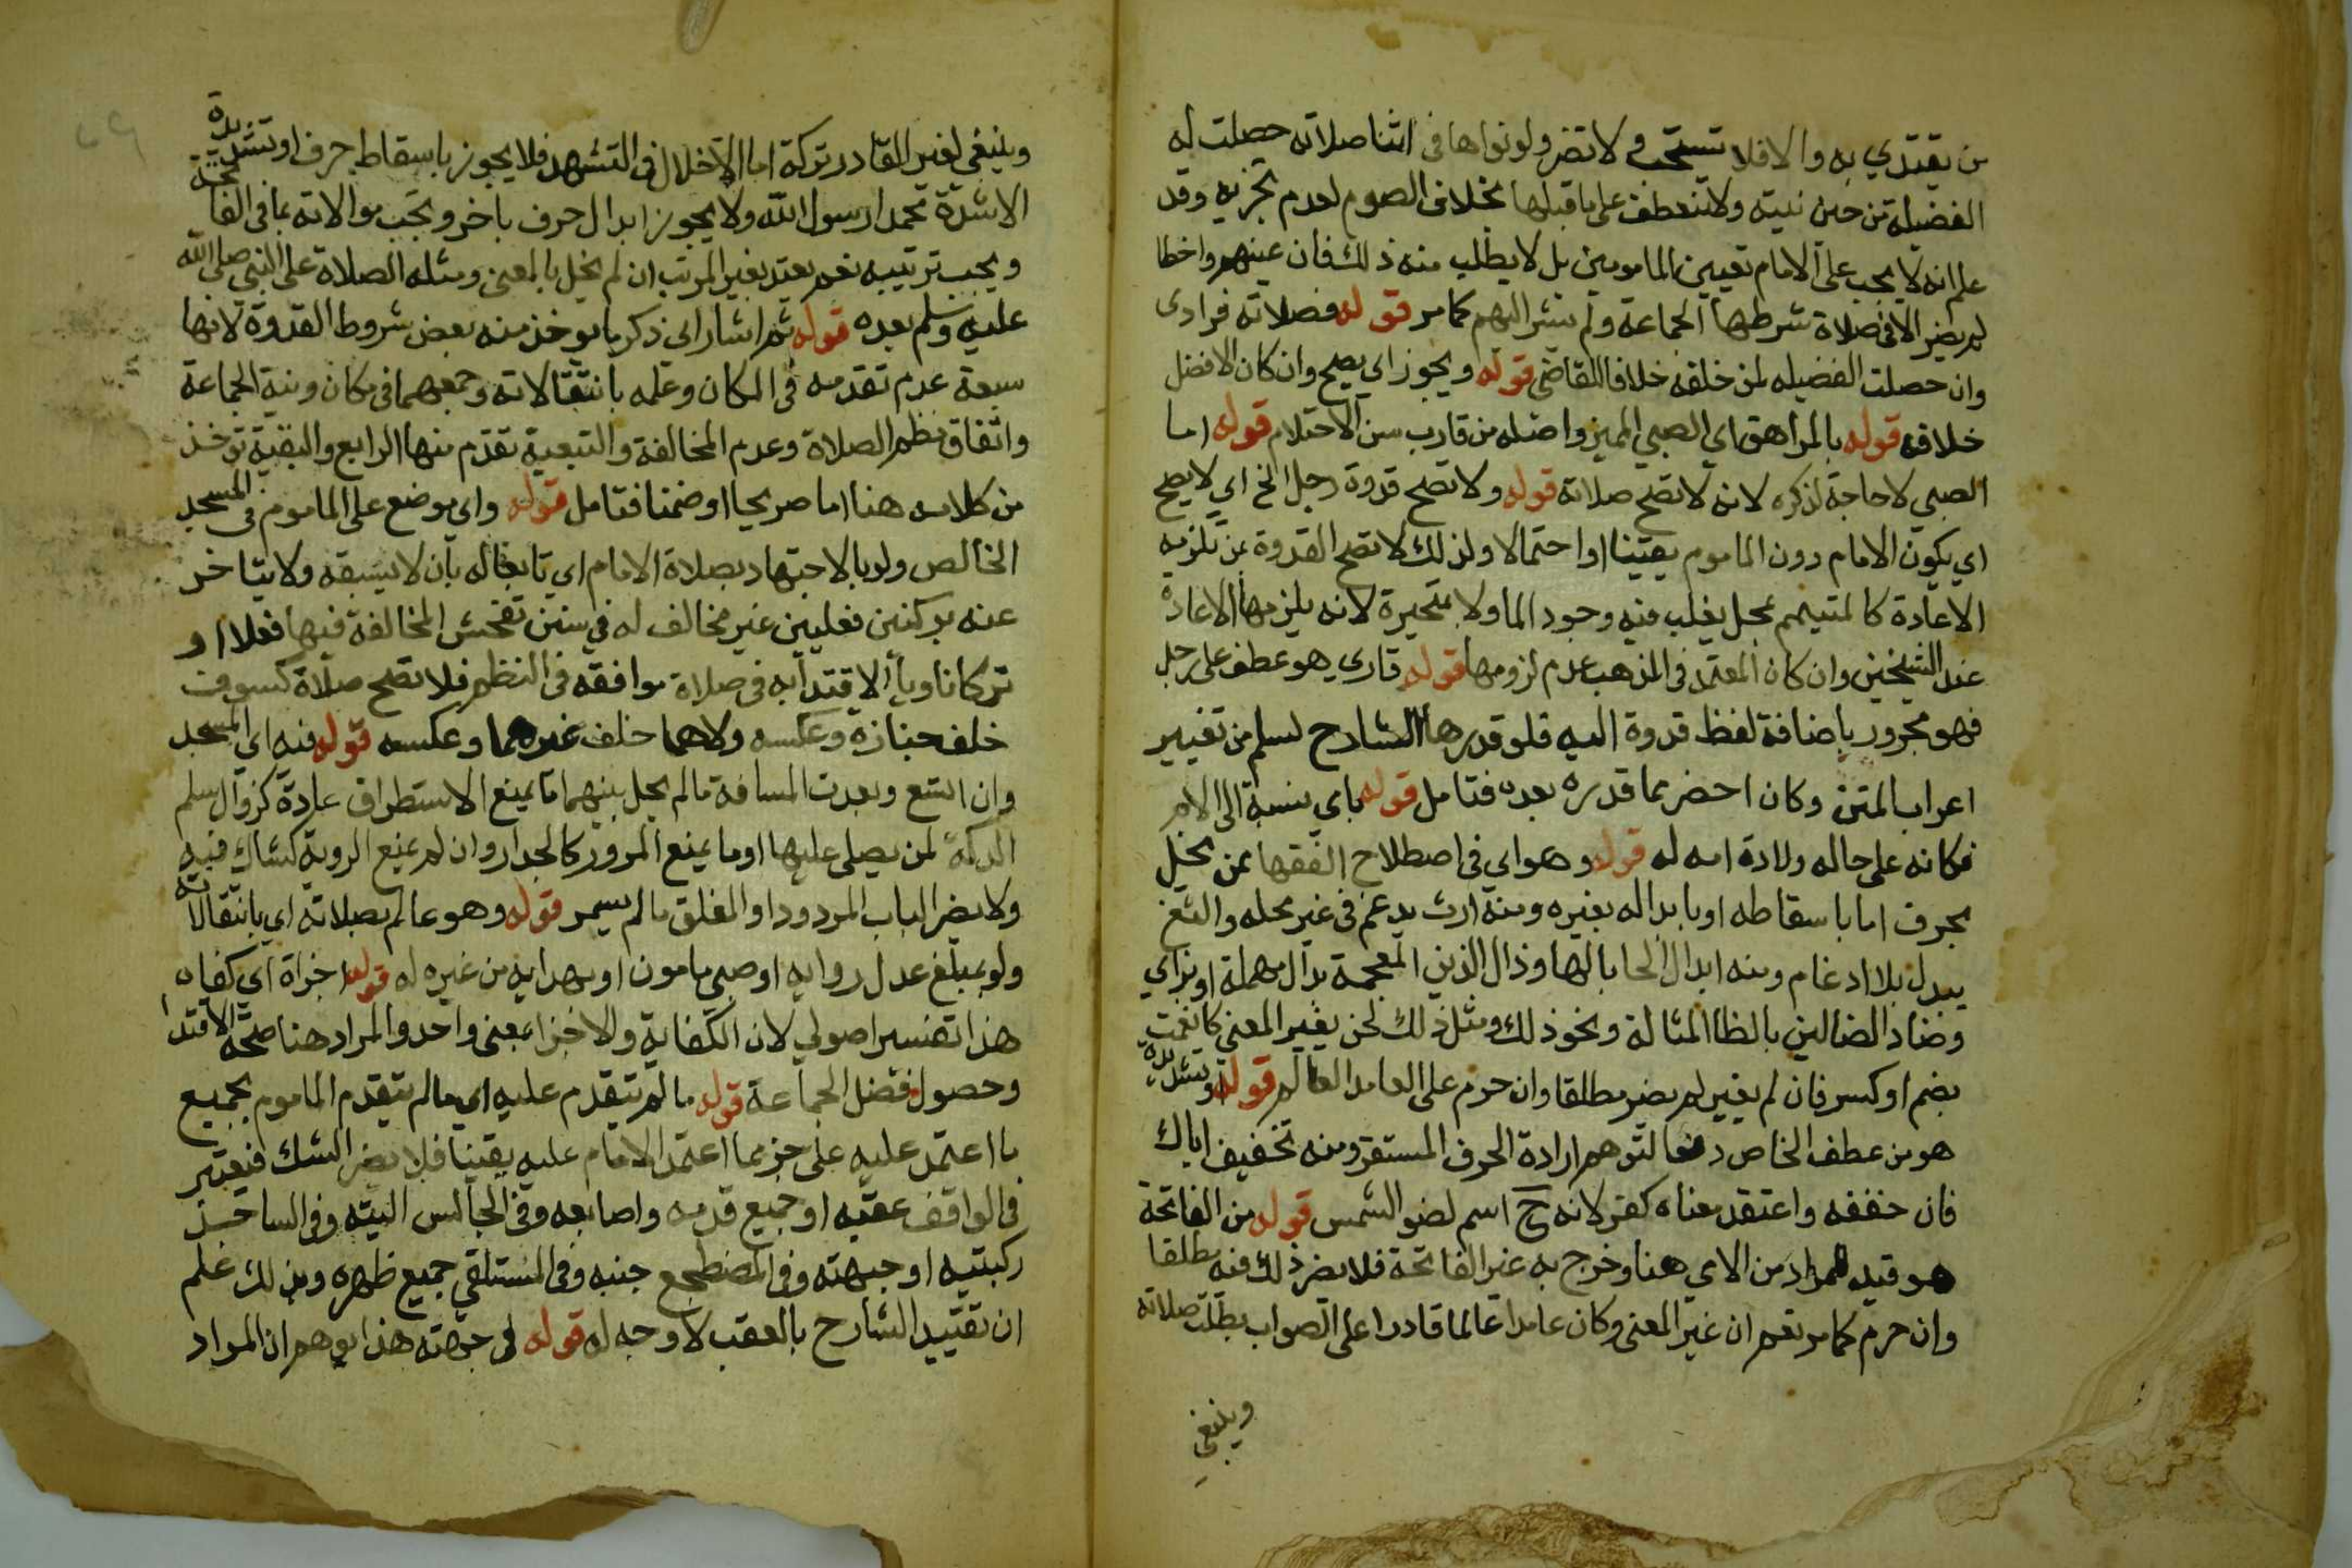 من يقتدي به والا فلا تستحب ولا تضر ولو نواها في اثنا صلاته حصلت له
الفضيلة من حين نيته ولا تنعطف على ما قبلها بخلاف الصوم لعدم تجزيه وقد
علم انه لا يجب على الامام تعيين المامومين بل لا يطلب منه ذلك فان عينهم واخطا
لم يضر الا في صلاة شرطها الجماعة ولم يشر اليهم كما مر قوله فصلاته فرادى
وان حصلت الفضيله لمن خلفه خلافا للقاضي قوله ويجوز اي يصح وان كان الافضل
خلافه قوله بالمراهق اي الصبي المميز واصله من قارب سن الاحتلام قوله اما
الصبي لا حاجة لذكره لانه لا تصح صلاته قوله ولا تصح قدوة رجل الخ اي لا يصح
اي يكون الامام دون الماموم يقينا او احتمالا ولذلك لا تصح القدوة بمن تلزمه
الاعادة كالمتيمم بمحل يغلب فيه وجود الما ولا بمتحيرة لانه يلزمها الاعادة
عند الشيخين وان كان المعتمد في المذهب عدم لزومها قوله قاري هو عطف على رجل
فهو مجرور باضافة لفظ قدوة اليه فلو قدرها الشارح لسلم من تغيير
اعراب المتن وكان احضر مما قدره بعده فتامل قوله باي بنسبة الى الام
فكانه على حاله ولادة امه له قوله وهو اي في اصطلاح الفقها من يخل
بحرف اما باسقاطه او بابداله بغيره ومنه ارت يدغم في غير محله والثغ
يبدل بلا ادغام ومنه ابدال الحا بالها وذال الذين المعجمة بدال مهملة او بزاي
وضاد الضالين بالظا المثالة ونحو ذلك ومثل ذلك لحن يغير المعنى كانعمت
بضم او كسر فان لم يغير لم يضر مطلقا وان حرم على العامد العالم قوله او تشديدة
هو من عطف الخاص دفعا لتوهم ارادة الحرف المستقر ومنه تخفيف اياك
فان خففه واعتقد معناه كفر لانه ح اسم لضو الشمس قوله من الفاتحة
هو قيد المراد من الامي هنا وخرج به غير الفاتحة فلا يضر ذلك فيه مطلقا
وان حرم كما مر نعم ان غير المعنى وكان عامدا عالما قادرا على الصواب بطلت صلاته
وينبغي
وينبغي لغير القادر تركه اما الاخلال في التشهد فلا يجوز باسقاط حرف او تشديدة
الا شدة محمدا رسول الله ولا يجوز ابدال حرف باخر وتجب موالاته بما في الفاتحة
ويجب ترتيبه نعم يعتد بغير المرتب ان لم يخل بالمعنى ومثله الصلاة على النبي صلى الله
عليه وسلم بعده قوله ثم اشار الى ذكر ما يوخذ منه بعض شروط القدوة لانها
سبعة عدم تقدمه في المكان وعلمه بانتقالاته وجمعهما في مكان ونية الجماعة
واتفاق نظم الصلاة وعدم المخالفة والتبعية تقدم منها الرابع والبقية توخذ
من كلامه هنا اما صريحا او ضمنا فتامل قوله واي موضع على الماموم في المسجد
الخالص ولو بالاجتهاد بصلاة الامام اي تابعا له بان لا يسبقه ولا يتاخر
عنه بركنين فعليين غير مخالف له في سنن تفحش المخالفة فيها فعلا او
تركا ناويا الاقتدا به في صلاة موافقه في النظم فلا تصح صلاة كسوف
خلف جنازة وعكسه ولاهما خلف غيرهما وعكسه قوله فيه اي المسجد
وان اتسع وبعدت المسافة ما لم يحل بينهما ما يمنع الاستطراق عادة كزوال سلم
الدكة لمن يصلي عليها او ما يمنع المرور كالجدار وان لم يمنع الروية كشباك فيه
ولا يضر الباب المردود او المغلق ما لم يسمر قوله وهو عالم بصلاته اي بانتقالاته
ولو بمبلغ عدل رواية او صبي مامون او بهداية من غيره له قوله اجزاه اي كفاه
هذا تفسير اصولي لان الكفاية والاجزا بمعنى واحد والمراد هنا صحة الاقتدا
وحصول فضل الجماعة قوله ما لم يتقدم عليه اي ما لم يتقدم الماموم بجميع
ما اعتمد عليه على جزء مما اعتمد الامام عليه يقينا فلا يضر الشك فيعتبر
في الواقف عقبه او جميع قدمه واصابعه وفي الجالس اليته وفي الساجد
ركبتيه او جبهته وفي المضطجع جنبه وفي المستلقي جميع ظهره وبذلك علم
ان تقييد الشارح بالعقب لا وجه له قوله في جهته هذا يوهم ان المراد